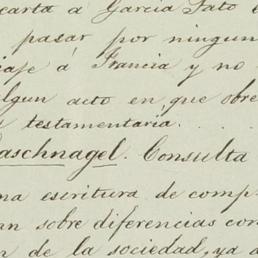 carta á García Jato
pasar por ningun
iaje á Francia y no
algun acto en que obre
testamentaria. . . .
aschnagel. Consulta
na escritura de comp
an sobre diferencias con
n de la sociedad, ya a